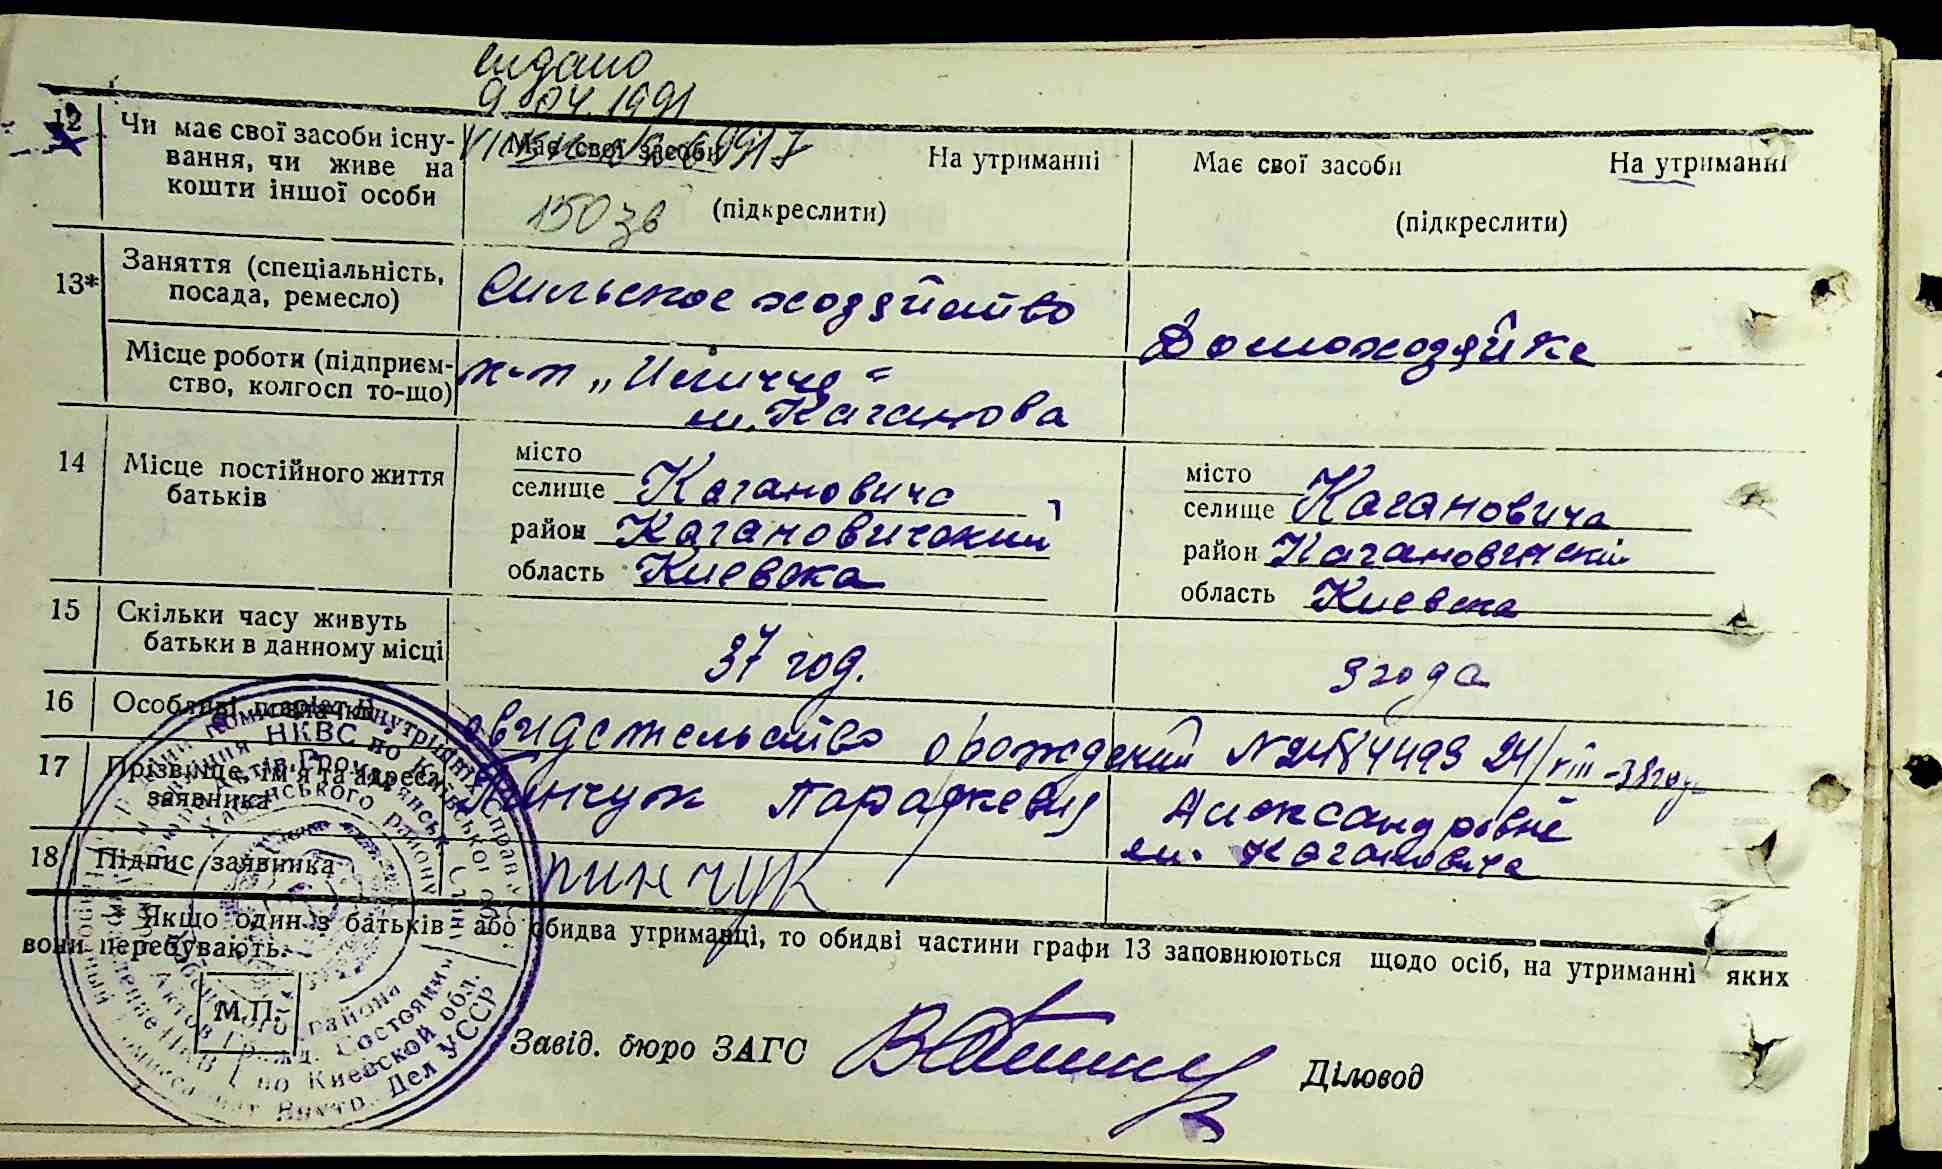 видано
9 04.1991
12
Чи має свої засоби існування, чи живе на кошти іншої особи
Має свої засоби
На утриманні
(підкреслити)
150 зв
Має свої засоби
На утриманні
(підкреслити)
13*
Заняття (спеціальність, посада, ремесло)
Сильское хозяйство
Домохозяйке
Місце роботи (підприємство, колгосп то-що)
м. Каганова
14
Місце постійного життя батьків
місто
селище Кагановича
район Кагановичский
область Киевска
місто
селище Кагановича
район
область Киевска
15
Скільки часу живуть батьки в данному місці
37 год.
3 года
16
Особливі
свидетельство о рождений № 2484493 24/VIII-38 году
17
Прізвище, ім'я та адреса заявника
Пинчук Параскевия Александровне
м. Кагановича
18
Підпис заявника
Пинчук
Якщо один з батьків або обидва утриманці, то обидві частини графи 13 заповнюються щодо осіб, на утриманні яких
вони перебувають.
М.П.
Завід. бюро ЗАГС
Діловод
НКВС по Київській
району
района
Актов Гражд. Состояния
по Киевской обл.
Внутр. Дел УССР